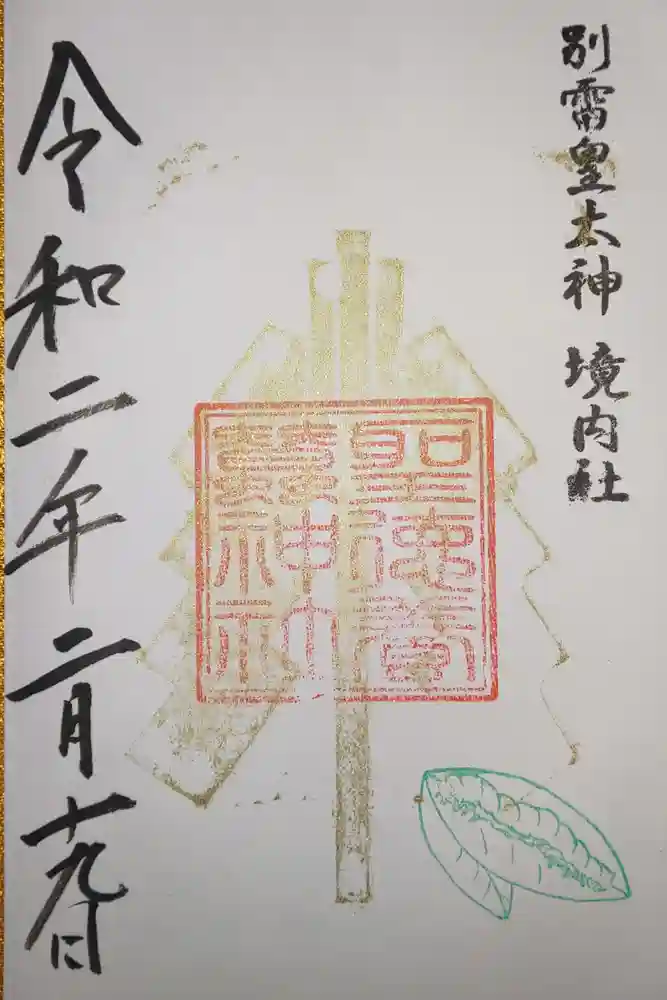 別雷皇太神 境内社
聖徳
令和二年二月十九日